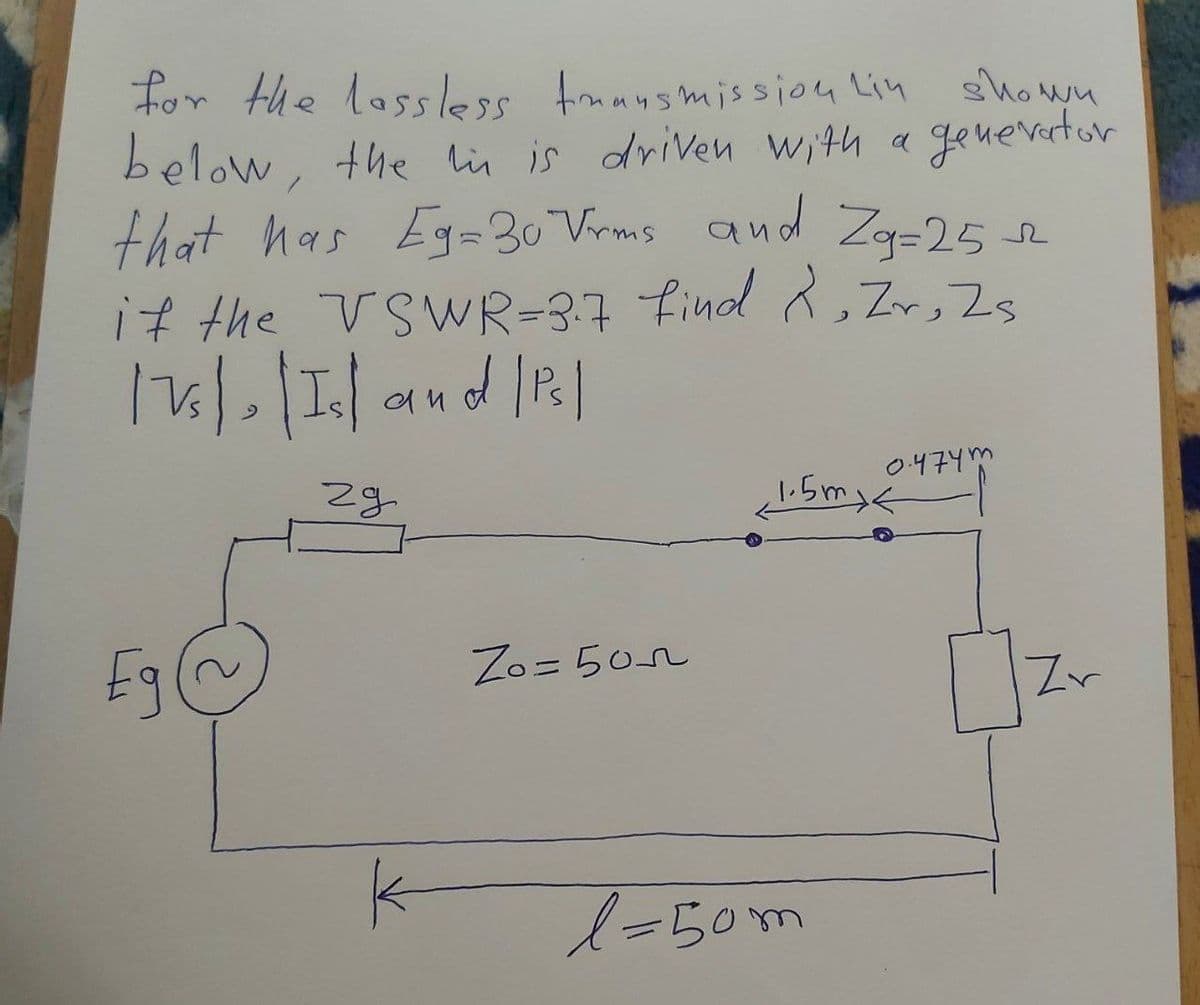 for the lossless transmission lin shown
below, the lin is driven with a generator
that has Eg=30 Vrms and Zg=25 Ω
if the VSWR=3.7 find λ, Zr, Zs
|Vs|, |Is| and |Ps|
0.474m
1.5m
Zg
Eg
Zo=50Ω
Zr
l=50m